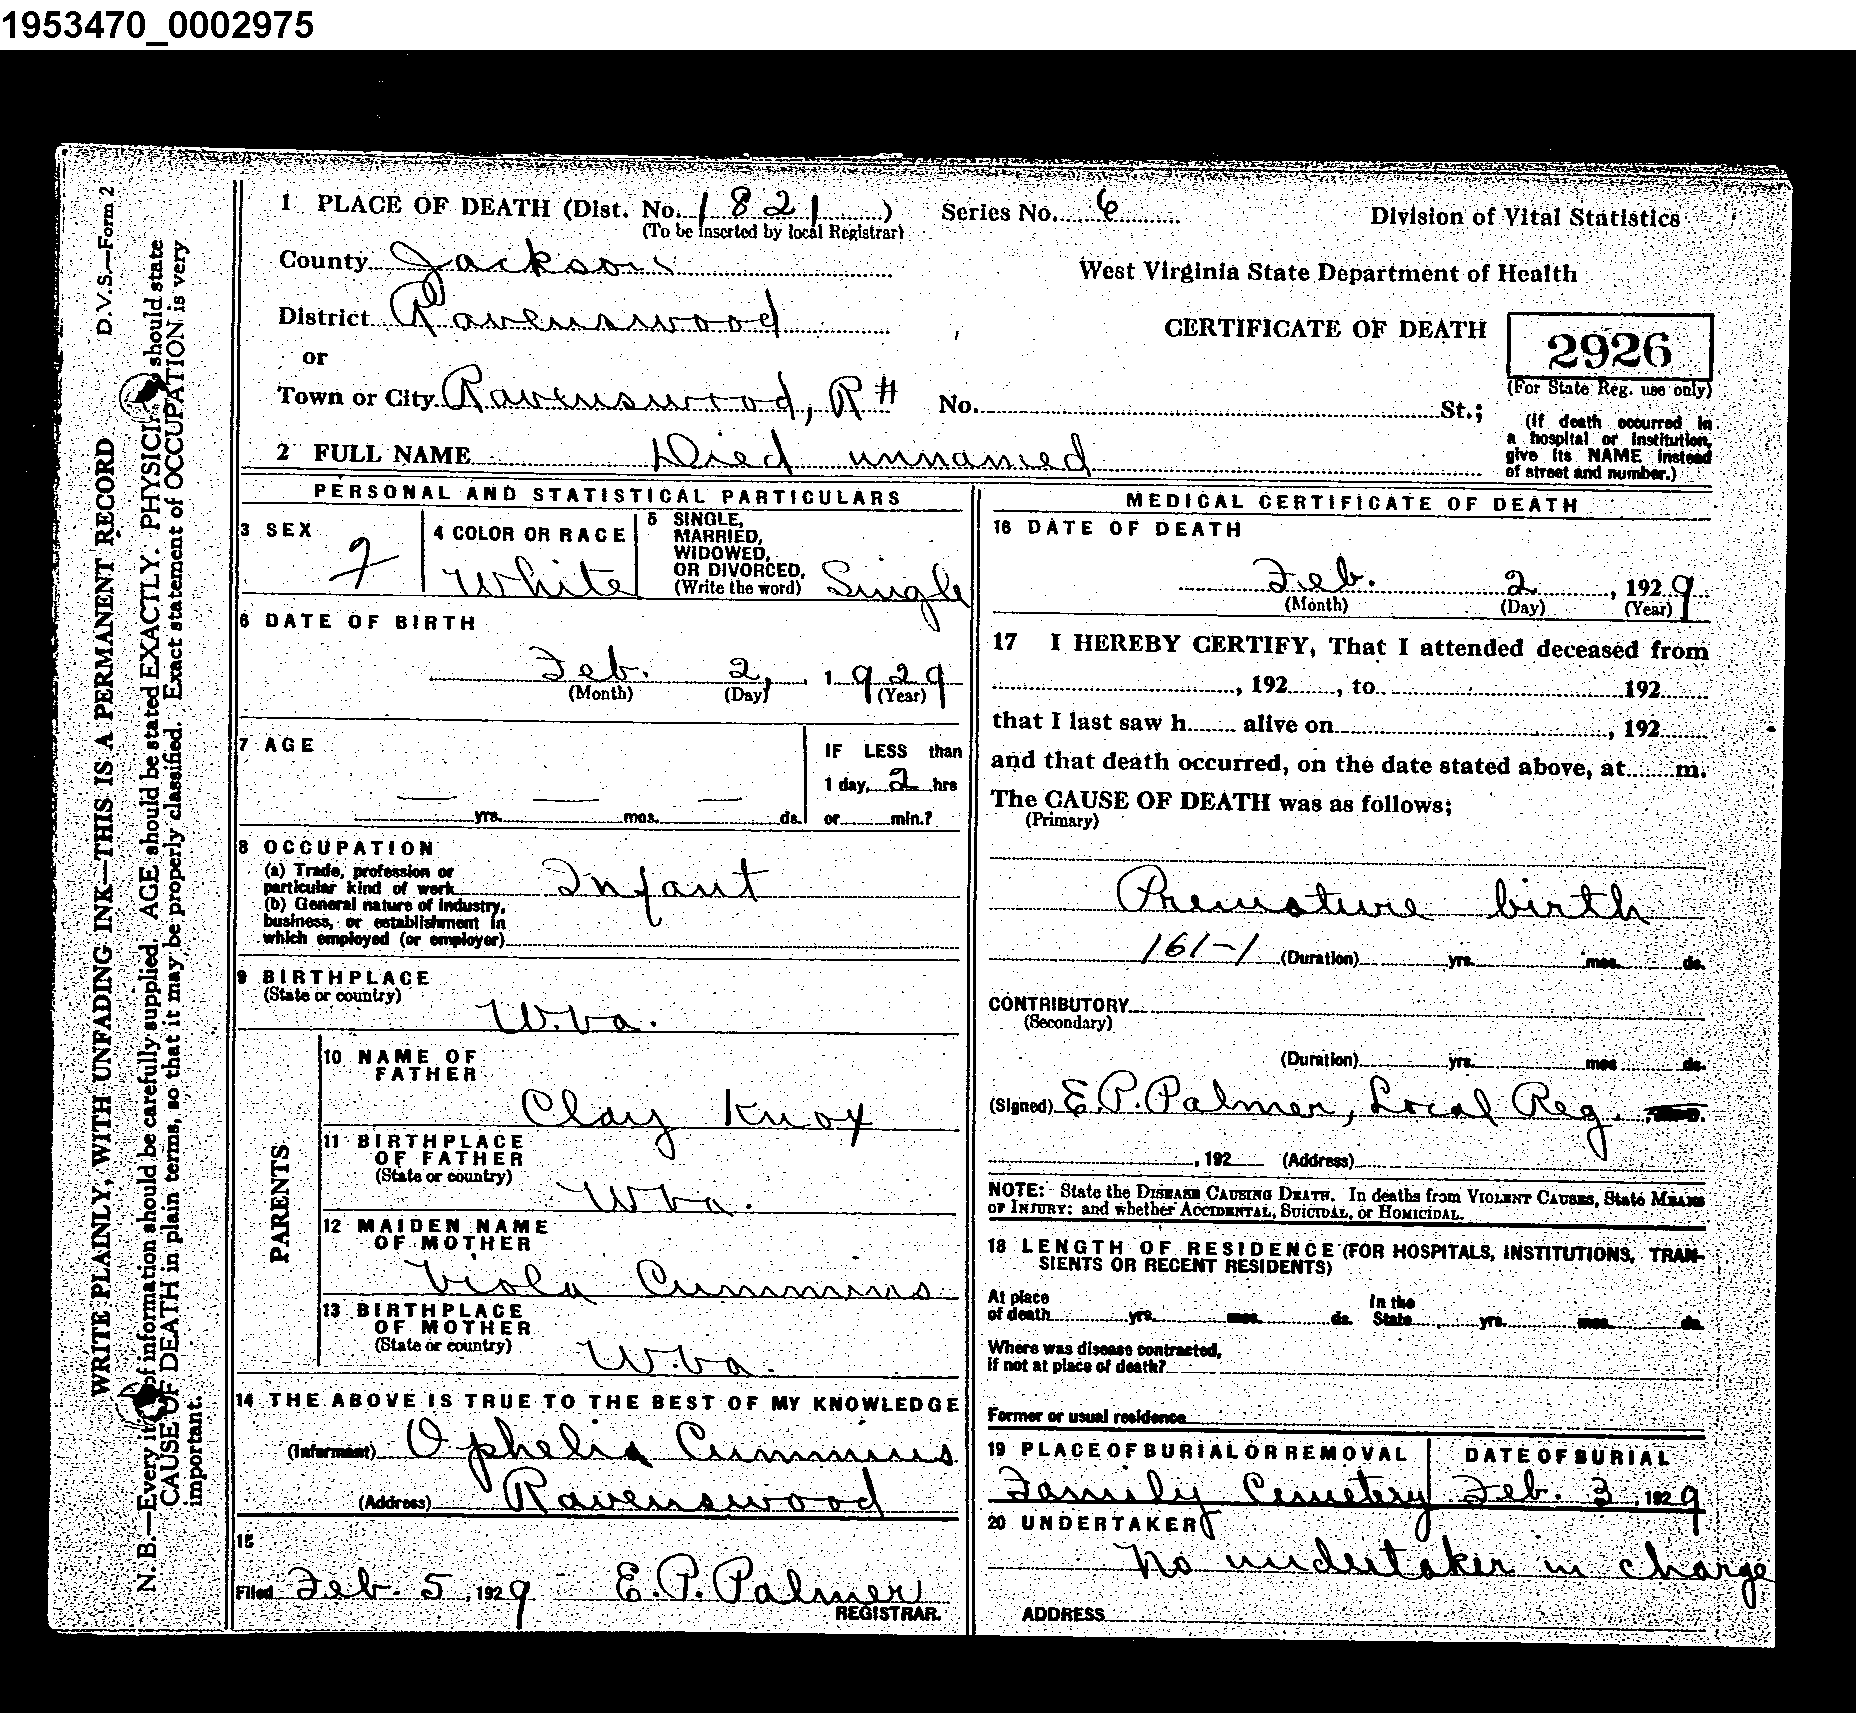 1953470_0002975
D.V.S.—Form 2
WRITE PLAINLY, WITH UNFADING INK—THIS IS A PERMANENT RECORD
N. B.—Every it of information should be carefully supplied. AGE should be stated EXACTLY. PHYSICI should state
CAUSE OF DEATH in plain terms, so that it may be properly classified. Exact statement of OCCUPATION is very
important.
1 PLACE OF DEATH (Dist. No. 1821) Series No. 6
(To be inserted by local Registrar)
Division of Vital Statistics
County Jackson
West Virginia State Department of Health
District Ravenswood
CERTIFICATE OF DEATH
2926
(For State Reg. use only)
or
Town or City Ravenswood, R# No. St.;
(If death occurred in
a hospital or institution,
give its NAME instead
of street and number.)
2 FULL NAME Died unnamed
PERSONAL AND STATISTICAL PARTICULARS
3 SEX
F
4 COLOR OR RACE
White
5 SINGLE,
MARRIED,
WIDOWED,
OR DIVORCED,
(Write the word) Single
6 DATE OF BIRTH
Feb. 2, 1929
(Month) (Day) (Year)
7 AGE
— — —
yrs. mos. ds.
IF LESS than
1 day, 2 hrs
or min.?
8 OCCUPATION
(a) Trade, profession or
particular kind of work Infant
(b) General nature of industry,
business, or establishment in
which employed (or employer)
9 BIRTHPLACE
(State or country)
W.Va.
PARENTS
10 NAME OF
FATHER
Clay Knox
11 BIRTHPLACE
OF FATHER
(State or country)
W Va.
12 MAIDEN NAME
OF MOTHER
Viola Cummins
13 BIRTHPLACE
OF MOTHER
(State or country)
W.Va.
14 THE ABOVE IS TRUE TO THE BEST OF MY KNOWLEDGE
(Informant) Ophelia Cummins
(Address) Ravenswood
15
Filed Feb. 5, 1929 E.P. Palmer
REGISTRAR.
MEDICAL CERTIFICATE OF DEATH
16 DATE OF DEATH
Feb. 2, 1929
(Month) (Day) (Year)
17 I HEREBY CERTIFY, That I attended deceased from
, 192 , to 192
that I last saw h alive on , 192
and that death occurred, on the date stated above, at m.
The CAUSE OF DEATH was as follows;
(Primary)
Premature birth
161-1 (Duration) yrs. mos. ds.
CONTRIBUTORY
(Secondary)
(Duration) yrs. mos ds.
(Signed) E.P. Palmer, Local Reg.
, 192 (Address)
NOTE: State the DISEASE CAUSING DEATH. In deaths from VIOLENT CAUSES, State MEANS
OF INJURY; and whether ACCIDENTAL, SUICIDAL, or HOMICIDAL.
18 LENGTH OF RESIDENCE (FOR HOSPITALS, INSTITUTIONS, TRAN-
SIENTS OR RECENT RESIDENTS)
At place
of death yrs. mos. ds.
In the
State yrs. mos. ds.
Where was disease contracted,
if not at place of death?
Former or usual residence
19 PLACE OF BURIAL OR REMOVAL
Family Cemetery
DATE OF BURIAL
Feb. 3, 1929
20 UNDERTAKER
No undertaker in charge
ADDRESS